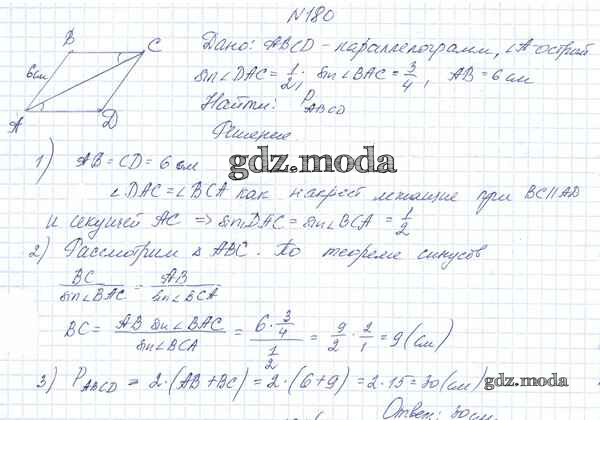 N180
B C
6см
A D
Дано: ABCD - параллелограмм, ∠A - острый
sin∠DAC = 1/2, sin∠BAC = 3/4, AB = 6 см
Найти: P ABCD
Решение.
1) AB = CD = 6 см
gdz.moda
∠DAC = ∠BCA как накрест лежащие при BC || AD
и секущей AC => sin DAC = sin∠BCA = 1/2
2) Рассмотрим Δ ABC. По теореме синусов
BC/sin∠BAC = AB/sin∠BCA
BC = AB sin∠BAC/sin∠BCA = 6·3/4 / 1/2 = 9/2 · 2/1 = 9 (см)
3) P ABCD = 2·(AB+BC) = 2·(6+9) = 2·15 = 30 (см)
gdz.moda
Ответ: 30 см.